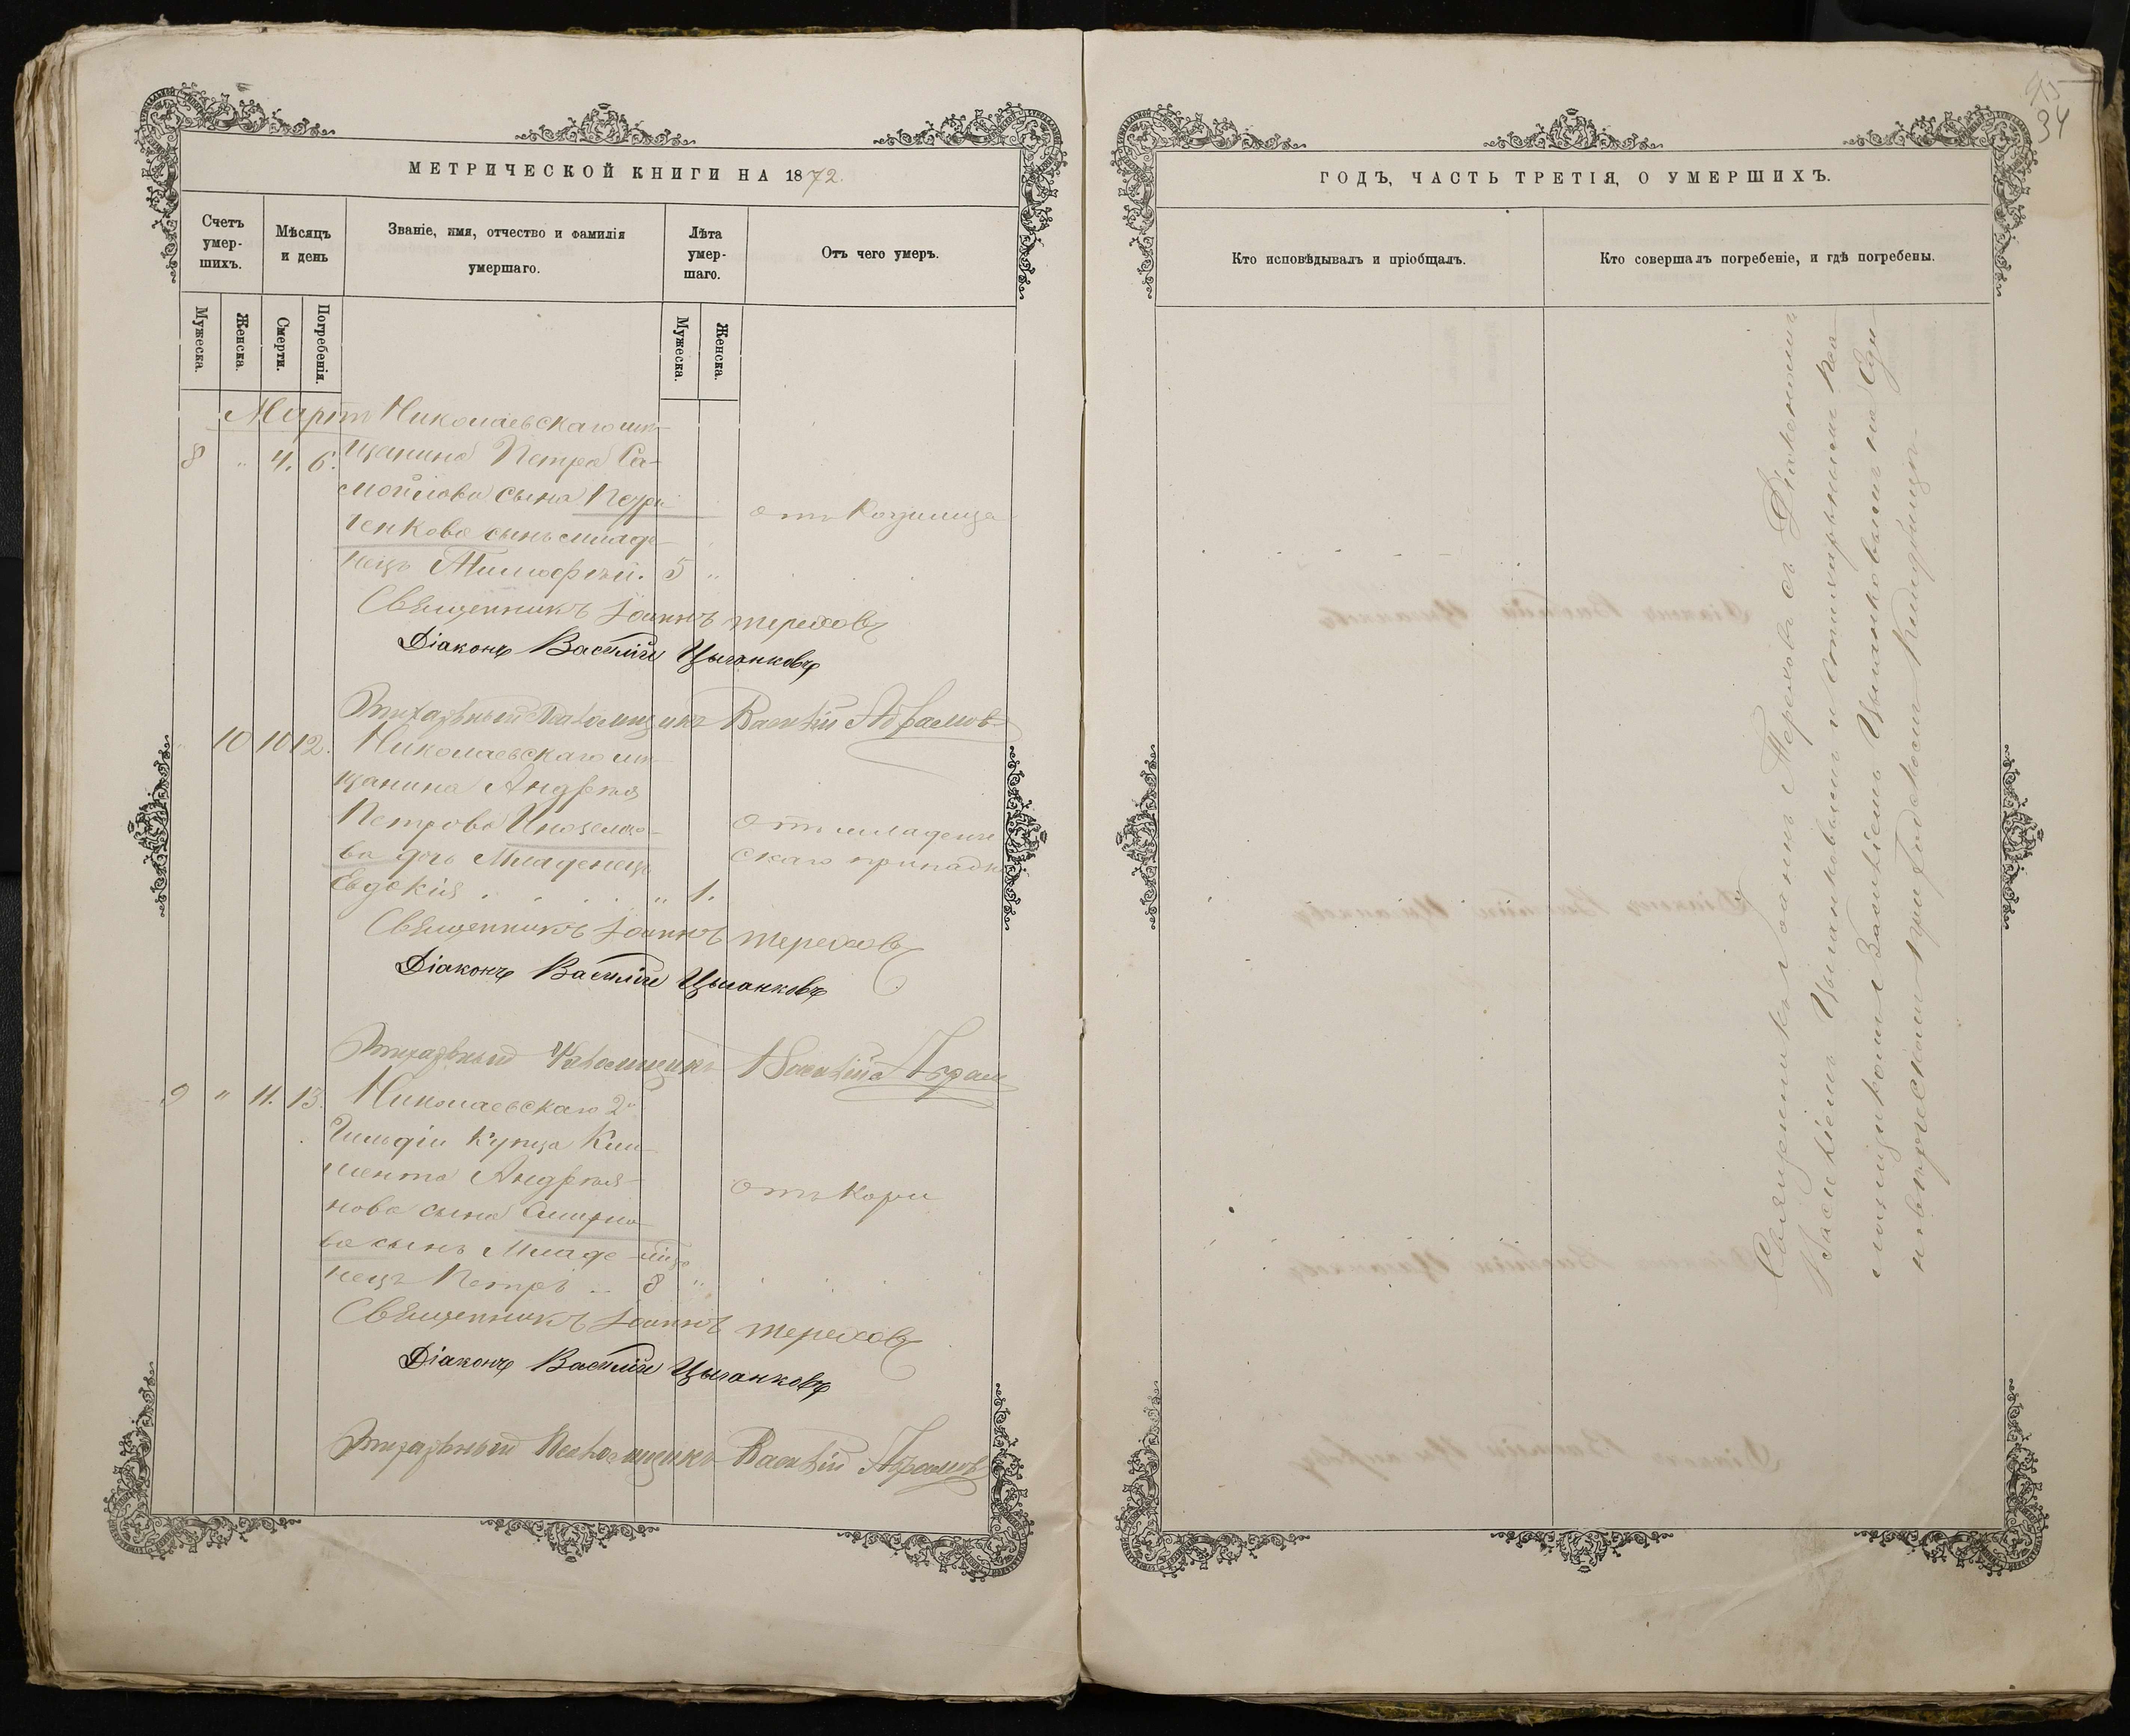 МЕТРИЧЕСКОЙ КНИГИ НА 1872.
Счетъ умер-шихъ.
Мѣсяцъ и день
Званіе, имя, отчество и фамилія умершаго.
Лѣта умер-шаго.
Отъ чего умеръ.
Мужеска.
Женска.
Смерти.
Погребенія.
Мужеска.
Женска.
Мартъ Николаевскаго мѣ-
8 " 4. 6. щанина Петра Са-
мойлова сына
отъ
ченкова сынъ младе-
нецъ Тимофей. 5 "
Священникъ Іоаннъ Тереховъ
Діаконъ Василій Цыганковъ
Василій Абрамовъ
" 10 10 12. Николаевскаго мѣ-
щанина Андрея
Петрова Иноземцо-
отъ младенче
ва дочь Младенецъ
скаго припадка
Евдокія . . . . " 1.
Священникъ Іоаннъ Тереховъ
Діаконъ Василій Цыганковъ
Василій Абрам
9 " 11. 13. Николаевскаго 2й
Гильдіи Купца Кли-
мента Андрея-
отъ Кори
нова сына Смирно-
ва сынъ Младе-
нецъ Петръ .. 8 "
Священникъ Іоаннъ Тереховъ
Діаконъ Василій Цыганковъ
Василій Абрамовъ
45
34
ГОДЪ, ЧАСТЬ ТРЕТІЯ, О УМЕРШИХЪ.
Кто исповѣдывалъ и пріобщалъ.
Кто совершалъ погребеніе, и гдѣ погребены.
Священникъ Іоаннъ Тереховъ съ Діакономъ
Василіемъ Цыганковымъ и
Василіемъ Цыганковымъ на Еди-
новѣрческомъ Кладбищѣ.